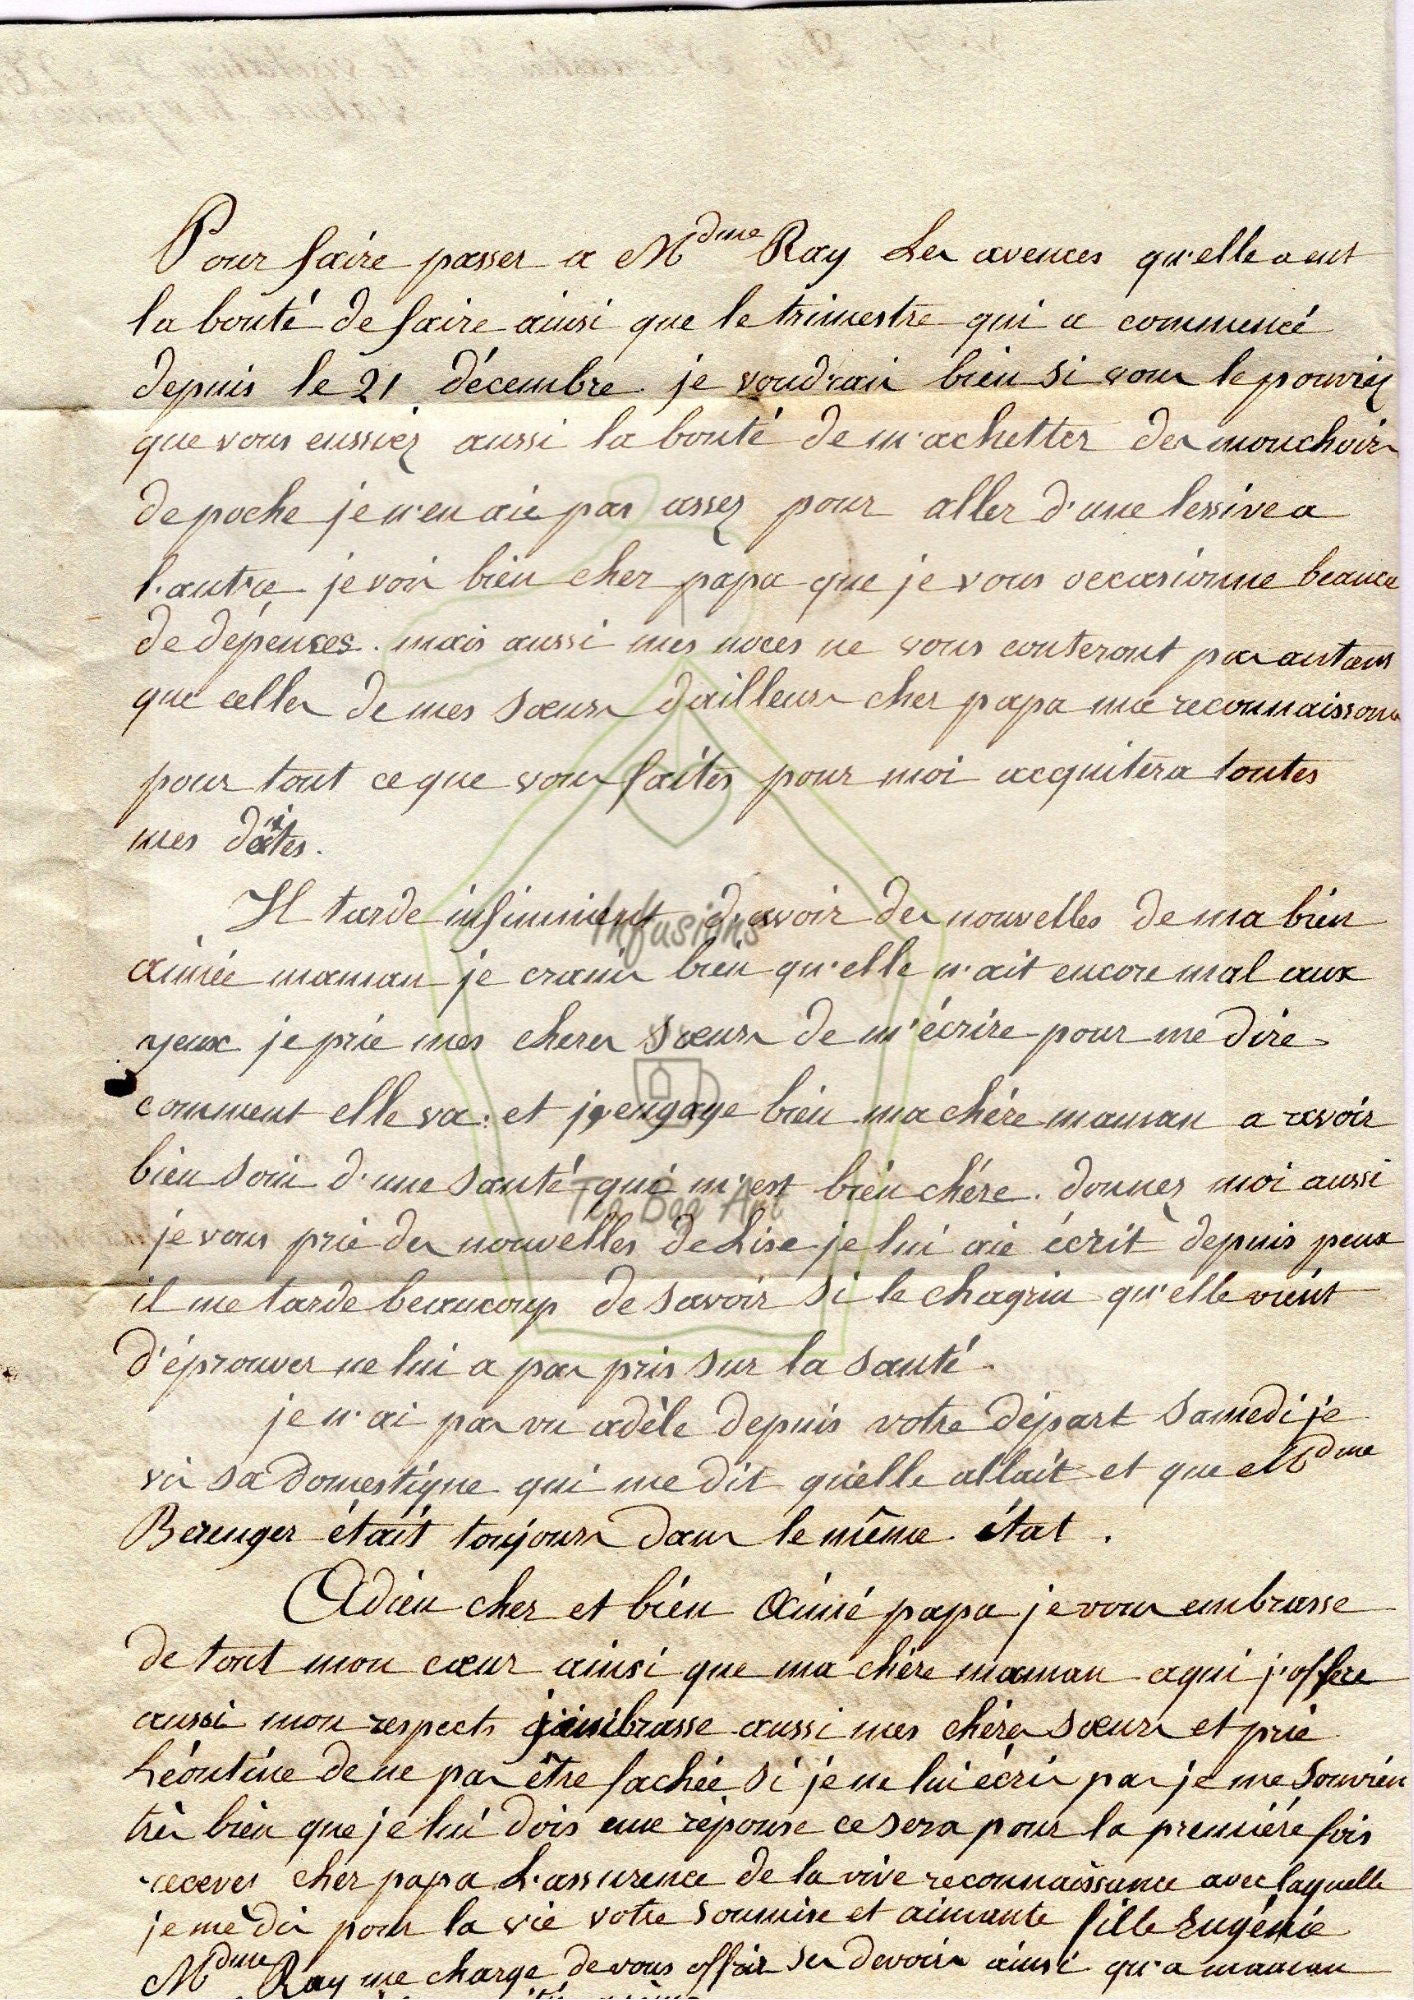 Pour faire passer a Mdme Ray Les avences qu'elle a eut
la bonté de faire ainsi que le trimestre qui a commencé
depuis le 21 décembre je voudrais bien si vous le pouviez
que vous eussiez aussi la bonté de m'achetter des mouchoirs
de poche je n'en aie pas assez pour aller d'une lessive a
l'autre je vois bien cher papa que je vous occasionne beauco
de dépenses. mais aussi mes noces ne vous conteront pas autans
que celles de mes sœurs d'ailleurs cher papa ma reconnaissan
pour tout ce que vous faites pour moi acquitera toutes
mes dètes.
Il tarde infiniment d'avoir des nouvelles de ma bien
aimée maman je crains bien qu'elle n'ait encore mal aux
yeux je prie mes cheres sœurs de m'écrire pour me dire
comment elle va: et j'engage bien ma chère maman a avoir
bien soin d'une santé qui m'est bien chére. donnez moi aussi
je vous prie des nouvelles de Lise je lui aie écrit depuis peux
il me tarde beaucoup de savoir si le chagrin qu'elle vient
d'éprouver ne lui a pas pris sur la santé.
je n'ai pas vu adèle depuis votre départ samedi je
vis sa domestique qui me dit qu'elle allait et que Mdme
Berenger était toujours dans le même état.
Adieu cher et bien Aimé papa je vous embrasse
de tout mon cœur ainsi que ma chère maman a qui j'offre
aussi mon respects j'embrasse aussi mes chéres sœurs et prie
Léontine de ne pas être fachée si je ne lui écris pas je me souvien
très bien que je lui dois une réponse ce sera pour la première fois
recevez cher papa L'assurence de la vive reconnaissance avec laquelle
je me dis pour la vie votre soumise et aimante fille Eugénie
Mdme Ray me charge de vous offrir ses devoirs ainsi qu'a maman
Infusions
Tea Bag Art